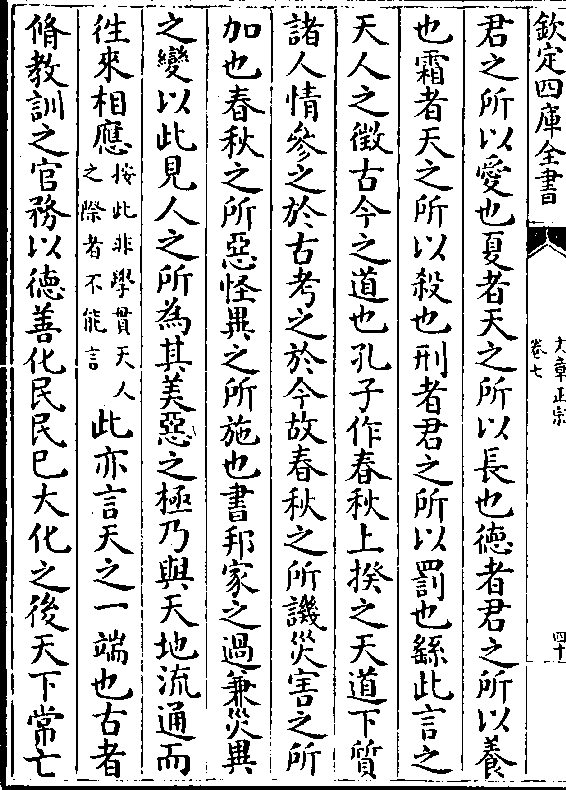 欽定四庫全書
文章正宗
卷七
四十
君之所以愛也夏者天之所以長也德者君之所以養
也霜者天之所以殺也刑者君之所以罰也繇此言之
天人之徵古今之道也孔子作春秋上揆之天道下質
諸人情參之於古考之於今故春秋之所譏災害之所
加也春秋之所惡怪異之所施也書邦家之過兼災異
之變以此見人之所為其美惡之極乃與天地流通而
徃來相應按此非學貫天人之際者不能言此亦言天之一端也古者
脩教訓之官務以德善化民民巳大化之後天下常亡